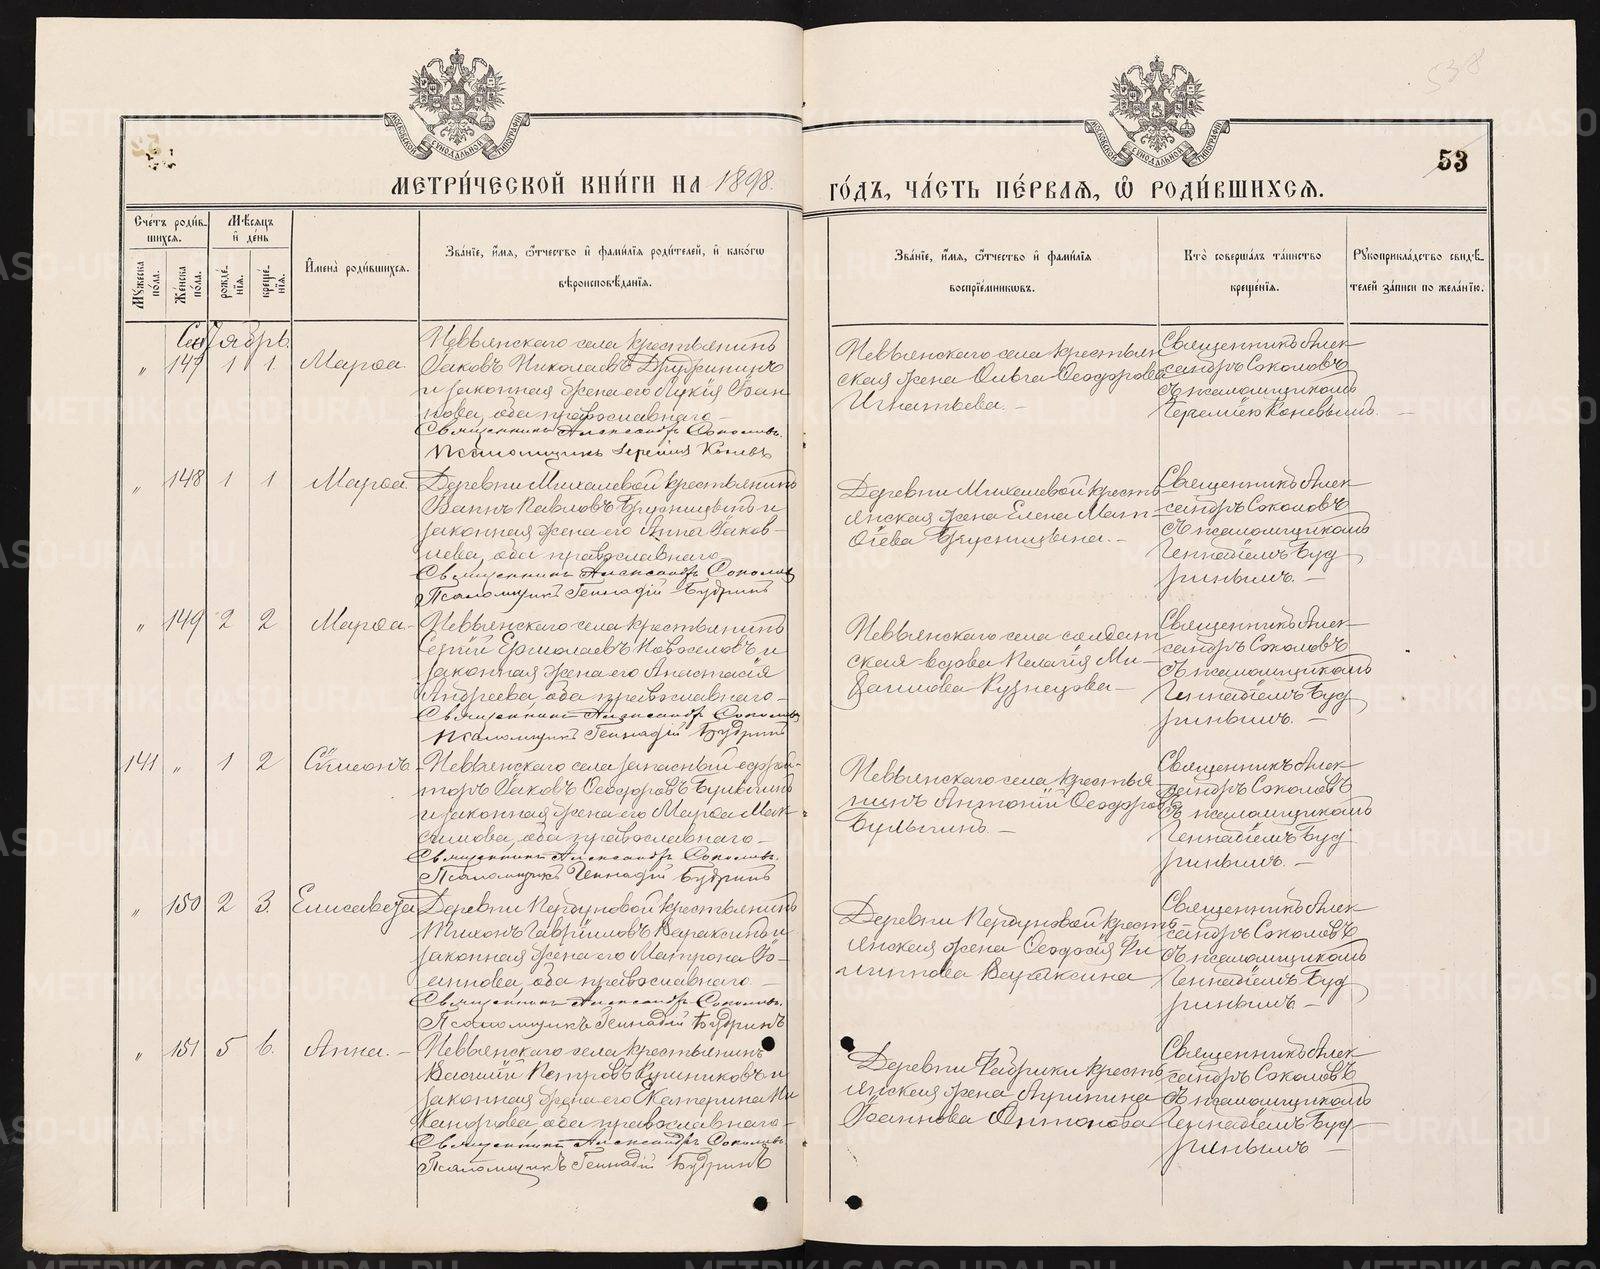 538
53
МЕТРИ́ЧЕСКОЙ КНИ́ГИ НА 1898.
ГО́ДЪ, ЧА́СТЬ ПЕ́РВАѦ, Ѽ РОДИ́ВШИХСѦ.
Сче́тъ роди́вшихсѧ.
Мꙋ́жеска по́ла.
Же́нска по́ла.
Мѣ́сѧцъ и҆ де́нь
рожде́нїѧ.
креще́нїѧ.
И҆мена̀ роди́вшихсѧ.
Зва́нїе, и҆́мѧ, ѻ҆́тчество и҆ фами́лїѧ роди́телей, и҆ како́гѡ
вѣроисповѣ́данїѧ.
Зва́нїе, и҆́мѧ, ѻ҆́тчество и҆ фами́лїѧ
воспрїе́мникѡвъ.
Кто̀ соверша́лъ та́инство
креще́нїѧ.
Рꙋкоприкла́дство свидѣ́-
телей за́писи по жела́нїю.
Сентябрь.
„ 147 1 1 Марѳа.
Невьянскаго села крестьянинъ
Іаковъ Николаевъ Дружининъ
и законная жена его Лукія Іоан-
нова, оба православнаго
Священникъ Александръ Соколовъ.
Псаломщикъ Іеремія Коневъ
Невьянскаго села крестьян
ская жена Ольга Ѳеодорова
Игнатьева. –
Священникъ Алек-
сандръ Соколовъ
съ псаломщикомъ
Іереміею Коневымъ. –
„ 148 1 1 Марѳа.
Деревни Михалевой крестьянинъ
Іоаннъ Павловъ Брусницынъ и
законная жена его Анна Іаков-
лева, оба православнаго
Священникъ Александръ Соколовъ
Псаломщикъ Геннадій Будринъ
Деревни Михалевой кресть-
янская жена Елена Мат-
ѳіева Брусницына. –
Священникъ Алек-
сандръ Соколовъ
съ псаломщикомъ
Геннадіемъ Буд
ринымъ. –
„ 149 2 2 Марѳа –
Невьянскаго села крестьянинъ
Сергій Ермолаевъ Новоселовъ и
законная жена его Анастасія
Андреева, оба православнаго –
Священникъ Александръ Соколовъ
Псаломщикъ Геннадій Будринъ
Невьянскаго села солдат
ская вдова Пелагія Ми-
Кузнецова –
Священникъ Алек-
сандръ Соколовъ
съ псаломщикомъ
Геннадіемъ Буд
ринымъ. –
141 „ 1 2 Сѷмеонъ –
Невьянскаго села запасный ефрей-
торъ Іаковъ Ѳеодоровъ
и законная жена его Марѳа Мак-
симова, оба православнаго –
Священникъ Александръ Соколовъ.
Псаломщикъ Геннадій Будринъ
Невьянскаго села крестья
нинъ Антоній Ѳеодоровъ
Священникъ Алек-
сандръ Соколовъ
съ псаломщикомъ
Геннадіемъ Буд
ринымъ. –
„ 150 2 3. Елисавета
Деревни крестьянинъ
Тихонъ Гавріиловъ Вараксинъ и
законная жена его Матрона Іо-
аннова, оба православнаго –
Священникъ Александръ Соколовъ.
Псаломщикъ Геннадій Будринъ
Деревни кресть
янская жена Ѳеодосія Фи
липпова Вараксина
Священникъ Алек-
сандръ Соколовъ
съ псаломщикомъ
Геннадіемъ Буд
ринымъ –
„ 151 5 6. Анна. –
Невьянскаго села крестьянинъ
Василій Петровъ и
законная жена его Екатерина Ни
канорова, оба православнаго –
Священникъ Александръ Соколовъ
Псаломщикъ Геннадій Будринъ
Деревни Фабрики кресть
янская жена Агрипина
Іоаннова Антонова
Священникъ Алек-
сандръ Соколовъ
съ псаломщикомъ
Геннадіемъ Буд-
ринымъ –